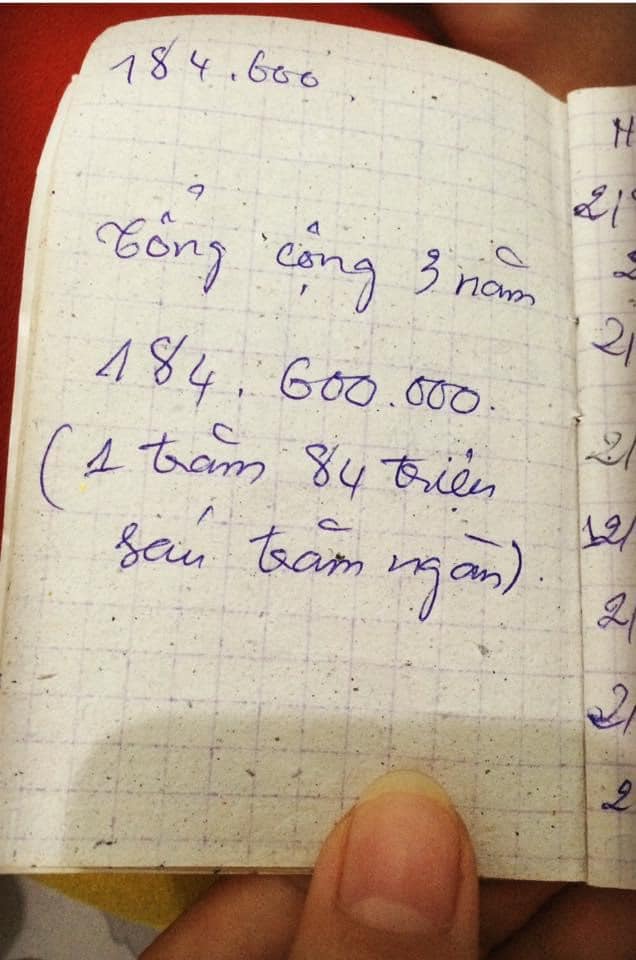 184.600.
Tổng cộng 3 năm
184.600.000.
(1 trăm 84 triệu
sáu trăm ngàn).
H
21
2
21
21
12/
21
21
2